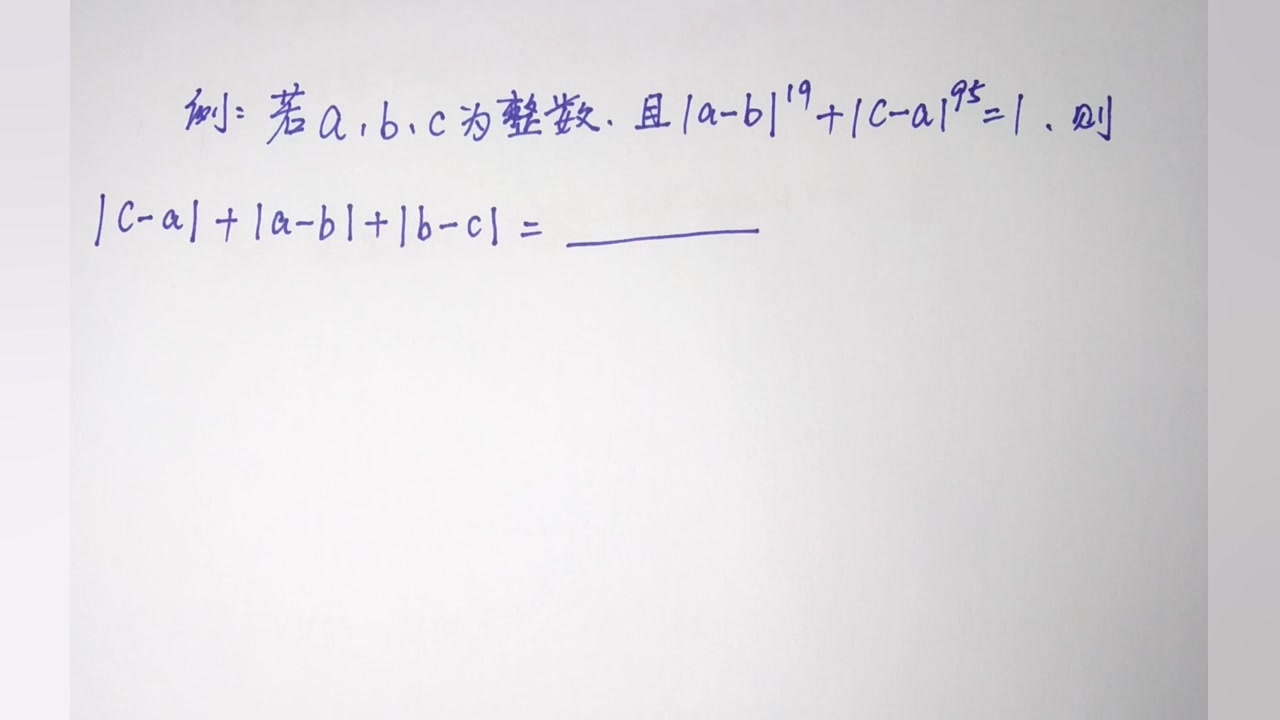 例：若a、b、c为整数．且|a-b|¹⁹+|c-a|⁹⁵=1．则
|c-a|+|a-b|+|b-c|=______